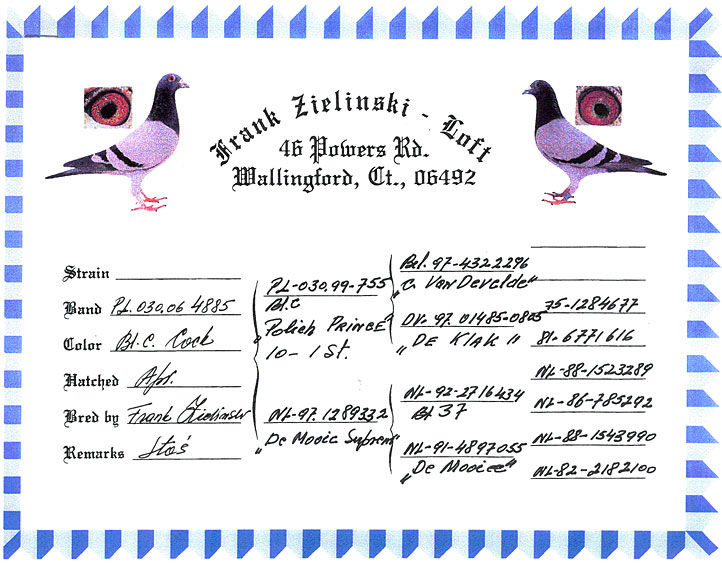 Frank Zielinski - Loft
46 Powers Rd.
Wallingford, Ct., 06492
Strain
Band PL.030.06 4885
Color Bl.C. Cock
Hatched Apr.
Bred by Frank Zielinski
Remarks Staś
PL-030.99-755
Bl.C
"Polich PRINCE"
10-1 St.
NL-97.1289332
"De Mooie Supreme
Bel. 97-4322296
"C. Van Develde"
DV. 97. 01485-0805
"DE KlAK"
NL-92-2716434
Bl 37
NL-91-4897055
"De Mooiee"
75-1284677
81-6771616
NL-88-1523289
NL-86-785292
NL-88-1543990
NL-82-2182100